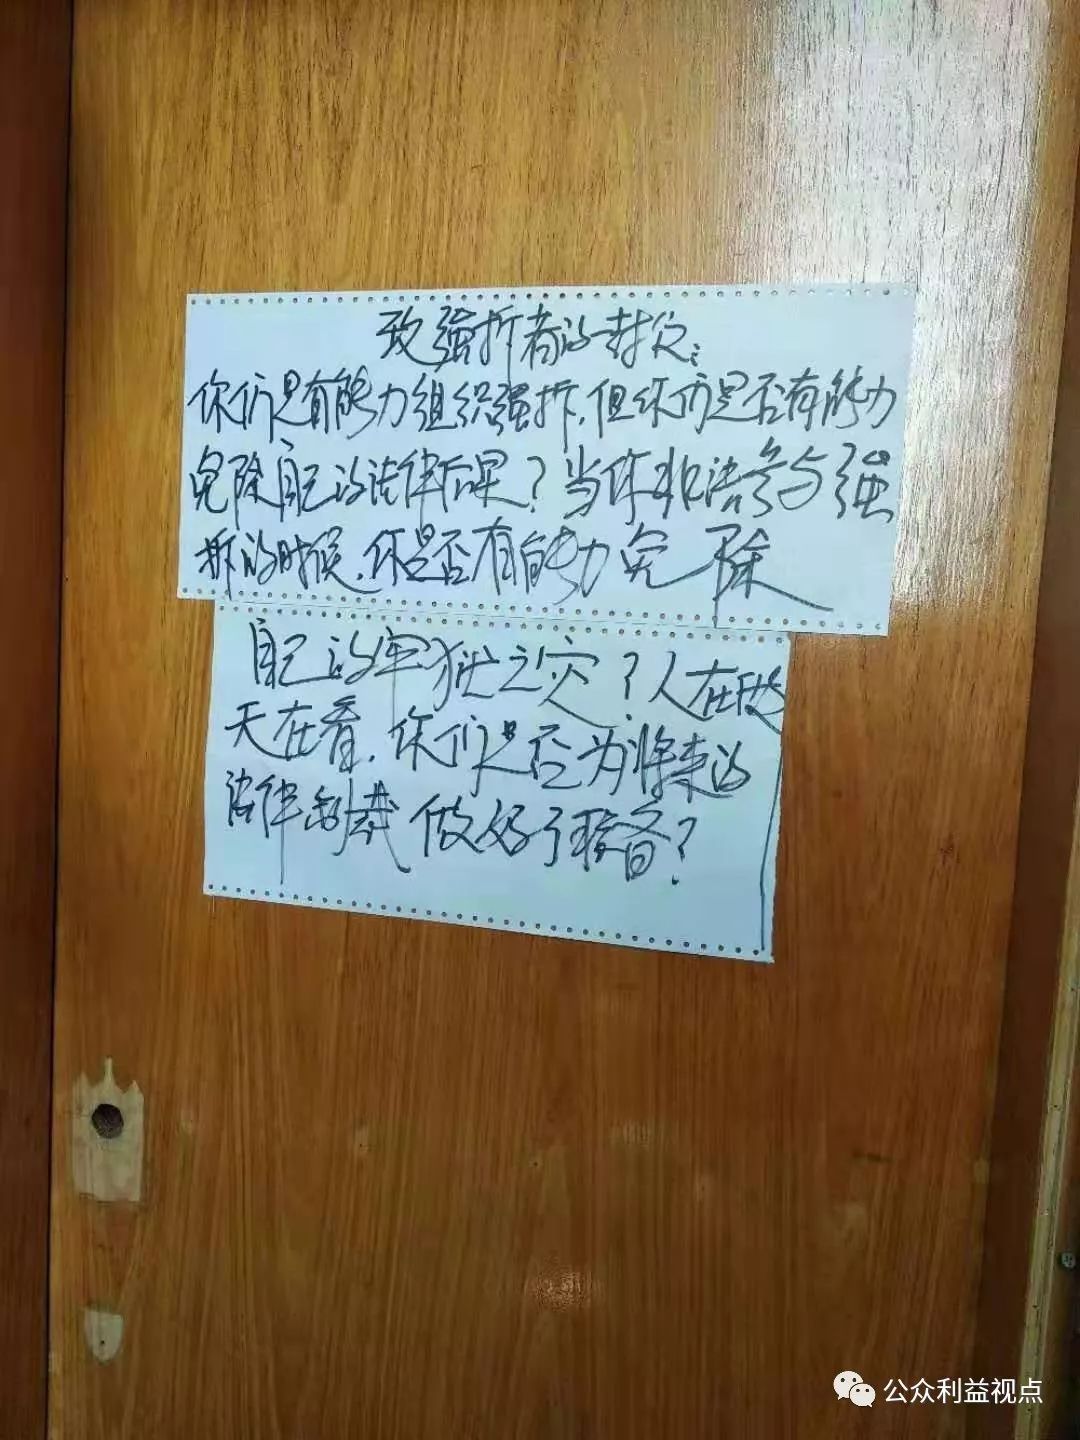 致强拆者的一封信：
你们是有能力组织强拆，但你们是否有能力
免除自己的法律后果？当你非法参与强
拆的时候，你是否有能力免除
自己的牢狱之灾？人在做
天在看，你们是否为将来的
法律制裁做好了准备？
公众利益视点